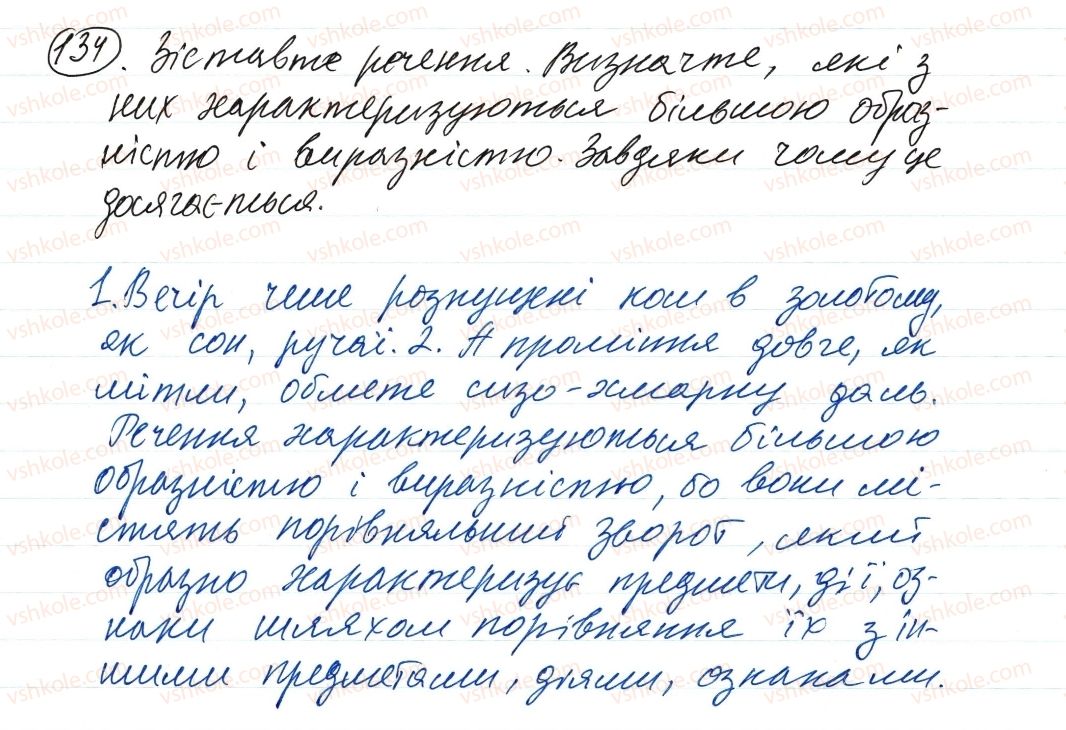 134. Зіставте речення. Визначте, які з
них характеризуються більшою образ-
ністю і виразністю. Завдяки чому це
досягається.
1. Вечір чеше розпущені коси в золотому,
як сон, ручаї. 2. А проміння довге, як
мітли, обмете сизо-хмарну даль.
Речення характеризуються більшою
образністю і виразністю, бо вони мі-
стять порівняльний зворот, який
образно характеризує предмети, дії, оз-
наки шляхом порівняння їх з ін-
шими предметами, діями, ознаками.